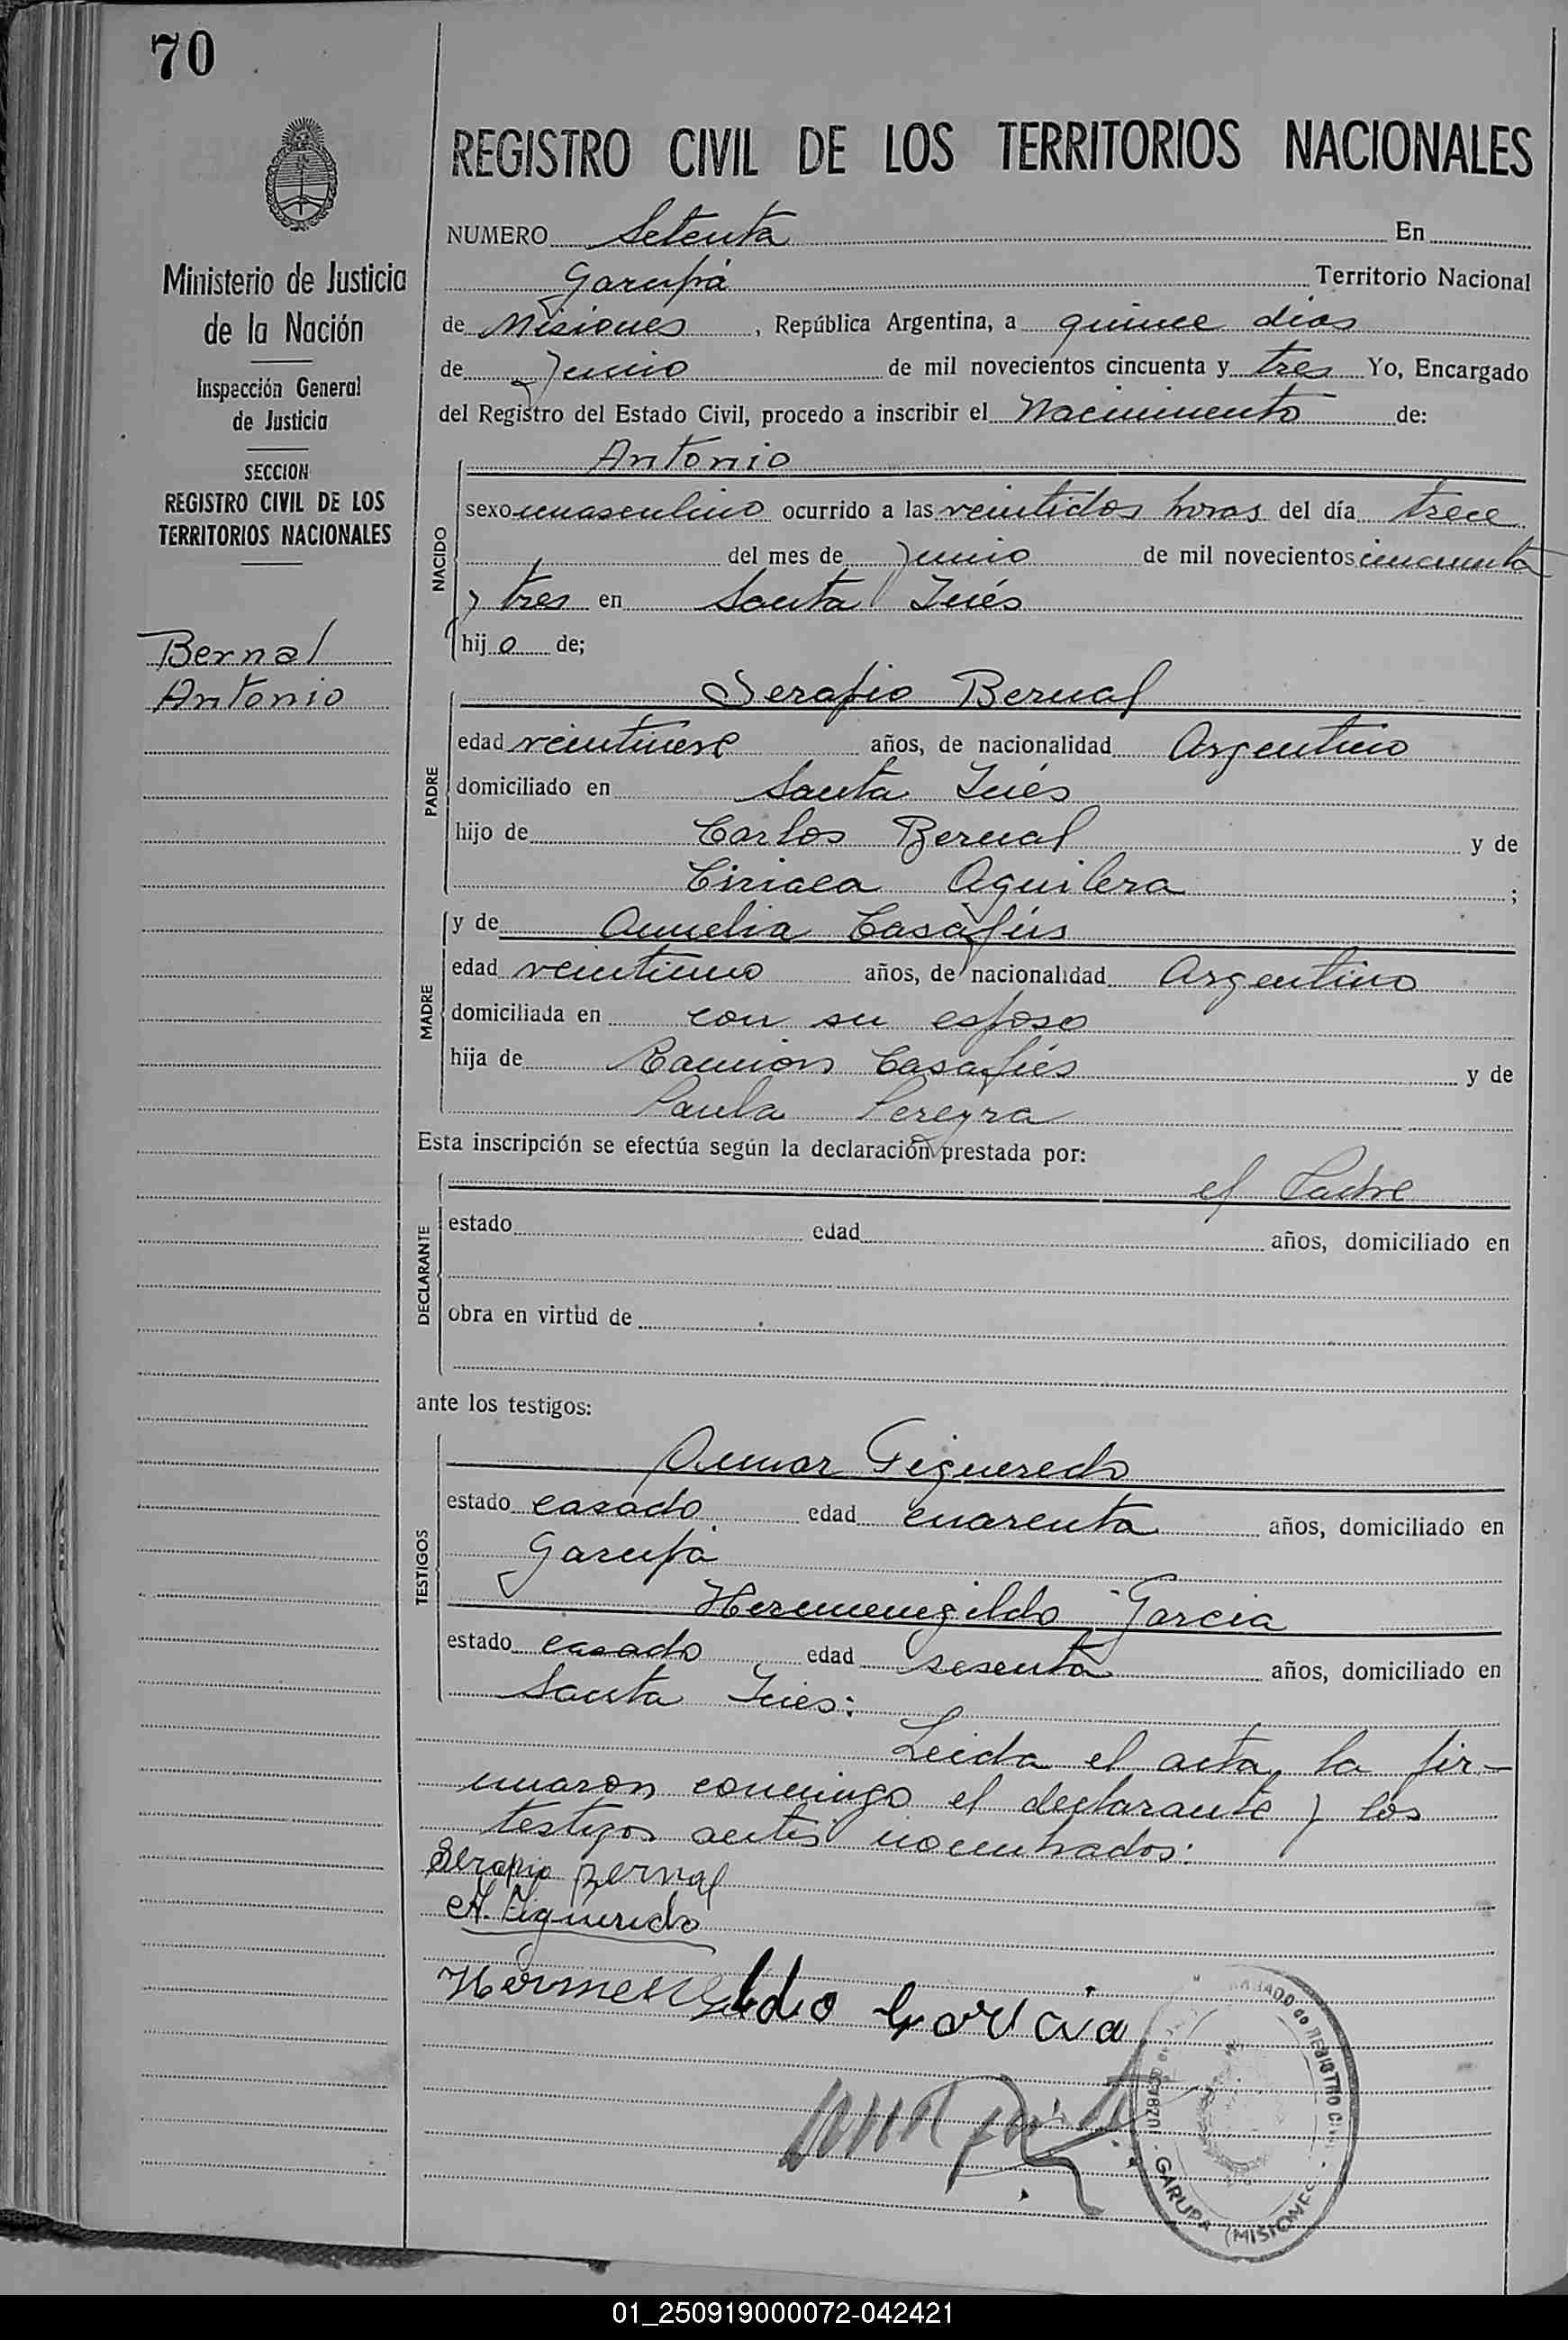 70
REGISTRO CIVIL DE LOS TERRITORIOS NACIONALES
Ministerio de Justicia
de la Nación
Inspección General
de Justicia
SECCION
REGISTRO CIVIL DE LOS
TERRITORIOS NACIONALES
Bernal
Antonio
NUMERO Setenta En
Garupá Territorio Nacional
de Misiones, República Argentina, a quince dias
de Junio de mil novecientos cincuenta y tres Yo, Encargado
del Registro del Estado Civil, procedo a inscribir el Nacimiento de:
NACIDO
Antonio
sexo masculino ocurrido a las veintidos horas del día trece
del mes de Junio de mil novecientos cincuenta
y tres en Santa Inés
hij o de;
PADRE
Serapio Bernal
edad años, de nacionalidad Argentino
domiciliado en Santa Inés
hijo de Carlos Bernal y de
Ciriaca Aguilera ;
MADRE
y de Amelia Casafús
edad veintiuno años, de nacionalidad Argentino
domiciliada en con su esposo
hija de Ramón Casafús y de
Paula Pereyra
Esta inscripción se efectúa según la declaración prestada por:
DECLARANTE
el Padre
estado edad años, domiciliado en
obra en virtud de
ante los testigos:
TESTIGOS
Figueredo
estado casado edad cuarenta años, domiciliado en
Garupá
Hermenegildo Garcia
estado casado edad sesenta años, domiciliado en
Santa Ines:
Leida el acta, la fir-
maron conmigo el declarante y los
testigos antes nombrados:
Serapio Bernal
A. Figueredo
Hermenegildo Garcia
REGISTRO CIVIL
GARUPA (MISIONES)
01_250919000072-042421